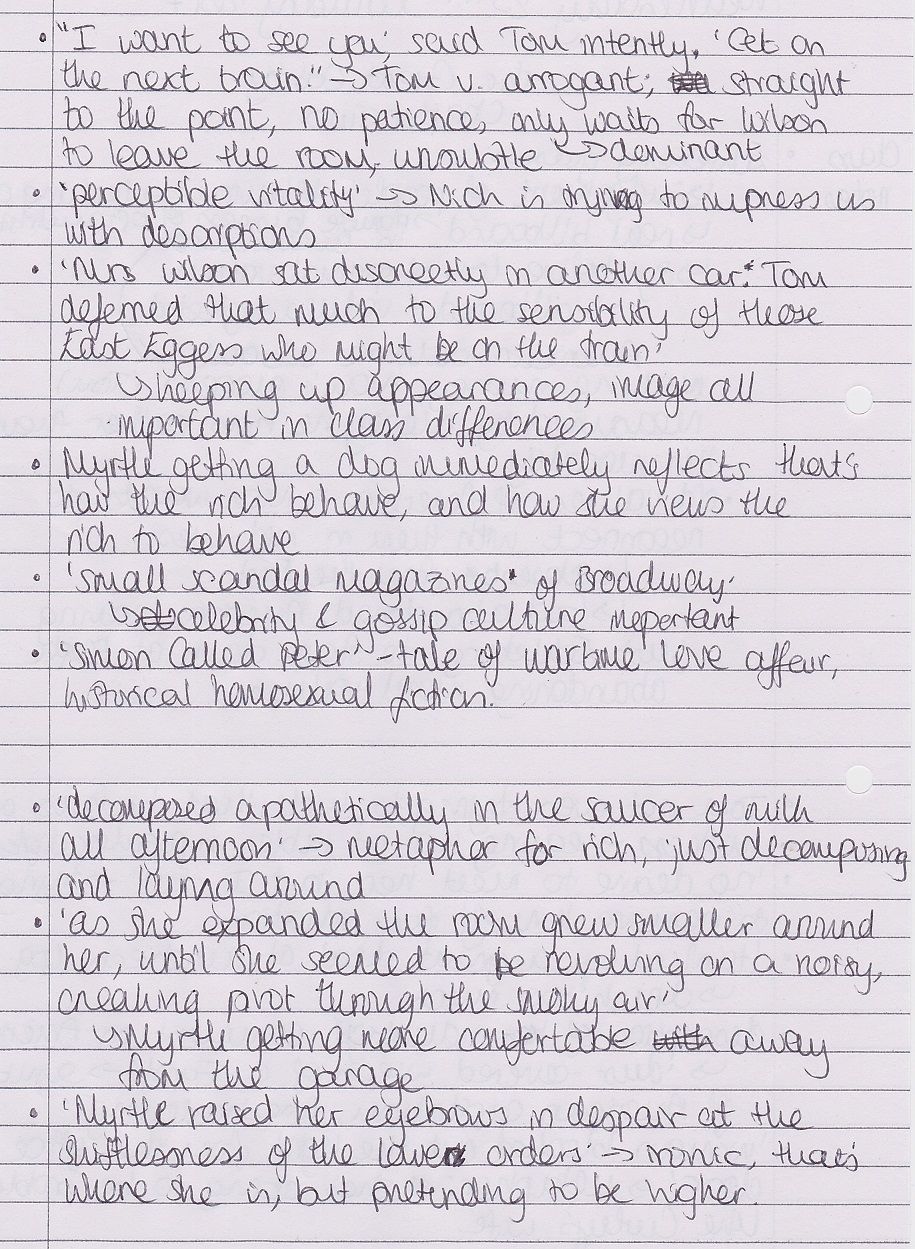 • "I want to see you', said Tom intently. 'Get on
the next train." → Tom v. arrogant; straight
to the point, no patience, only waits for Wilson
to leave the room, unsubtle ↳ dominant
• 'perceptible vitality' → Nick is trying to impress us
with descriptions
• 'Mrs Wilson sat discreetly in another car. Tom
deferred that much to the sensibility of those
East Eggess who might be on the train'
↳ keeping up appearances, image all
important in class differences
• Myrtle getting a dog immediately reflects that's
how the rich behave, and how she views the
rich to behave
• 'small scandal magazines' of Broadway'
↳ celebrity & gossip culture important
• 'Simon Called Peter' - tale of wartime love affair,
historical homosexual fiction.
• 'decomposed apathetically in the saucer of milk
all afternoon' → metapher for rich, just decomposing
and laying around
• 'as she expanded the room grew smaller around
her, until she seemed to be revolving on a noisy,
creaking pivot through the smoky air'
↳ Myrtle getting more comfortable away
from the garage
• 'Myrtle raised her eyebrows in despair at the
shiftlessness of the lower orders' → ironic, that's
where she is, but pretending to be higher.